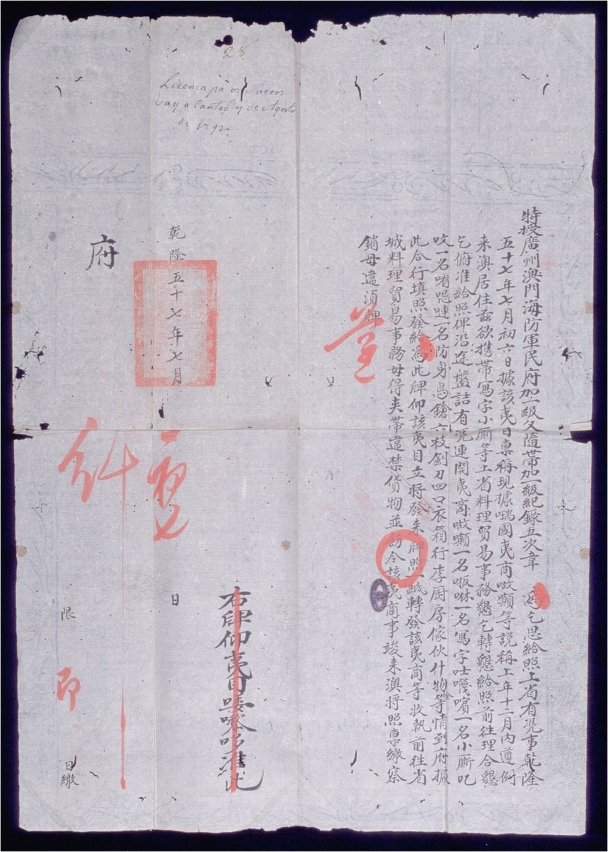 28
Licença pa os Suecos
vay a Cantão de Agosto
de 1792
特授廣州澳門海防軍民府加一級又隨帶加一級紀錄五次韋 為乞恩給照上省有凭事乾隆
五十七年七月初六日據該夷目稟稱現據國夷商等說稱上年十二月內遵例
來澳居住茲欲携帶寫字小厮等上省料理貿易事務懇乞轉懇給照前往理合懇
乞俯准給照俾沿途盤詰有凭連開夷商一名一名寫字一名小厮吃
一名一名防身鳥鎗六枝劍刀四口衣箱行李厨房傢伙什物等情到府據
此合行填照發給為此牌仰該夷目立將發來牌照一紙轉發該夷商等收執前往省
城料理貿易事務毋得夾帶違禁貨物並飭令該夷商事竣來澳將照稟繳察
銷毋違須牌
右牌仰夷目准此
乾隆五十七年七月 日
府
限 日繳